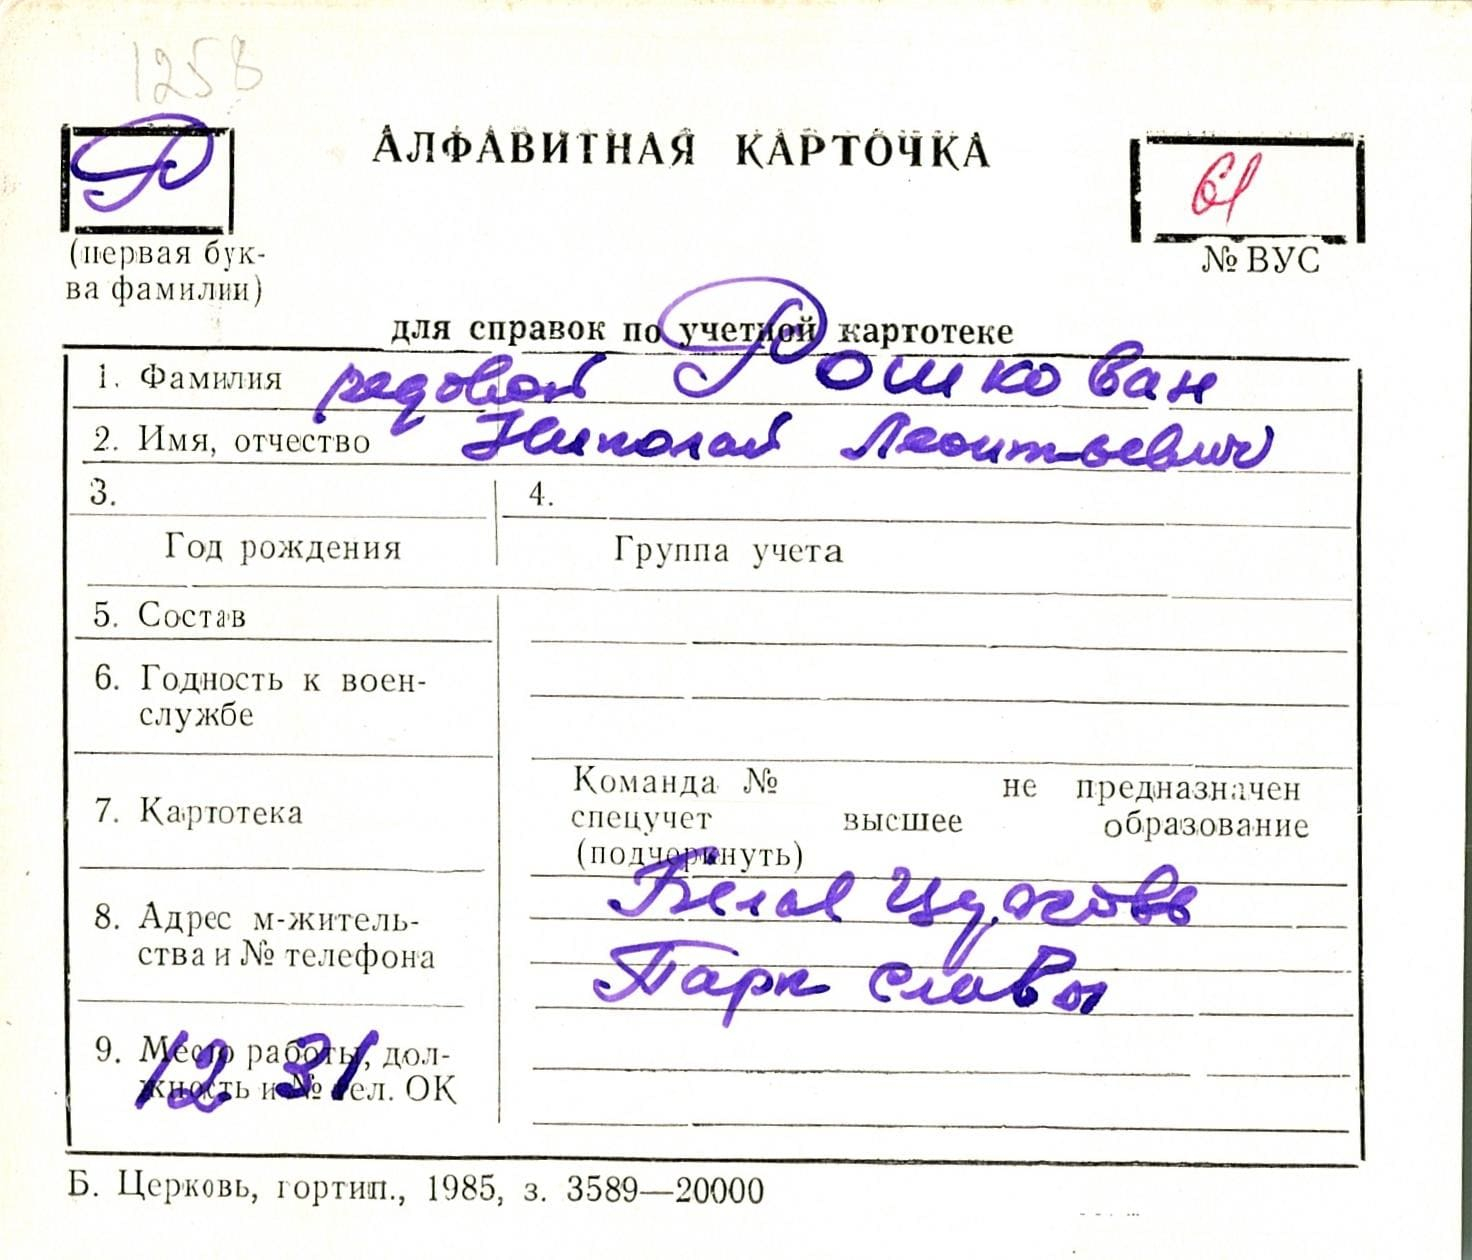 1258
Р
АЛФАВИТНАЯ КАРТОЧКА
61
(первая бук-
ва фамилии)
№ ВУС
для справок по учетной картотеке
1. Фамилия рядовой Рошкован
2. Имя, отчество Николай Леонтьевич
3.
4.
Год рождения
Группа учета
5. Состав
6. Годность к воен-
службе
7. Картотека
Команда № не предназначен
спецучет высшее образование
(подчеркнуть)
8. Адрес м-житель-
ства и № телефона
Белая Церковь
Парк славы
9. Место работы, дол-
жность и № тел. ОК
12 31
Б. Церковь, гортип., 1985, з. 3589—20000